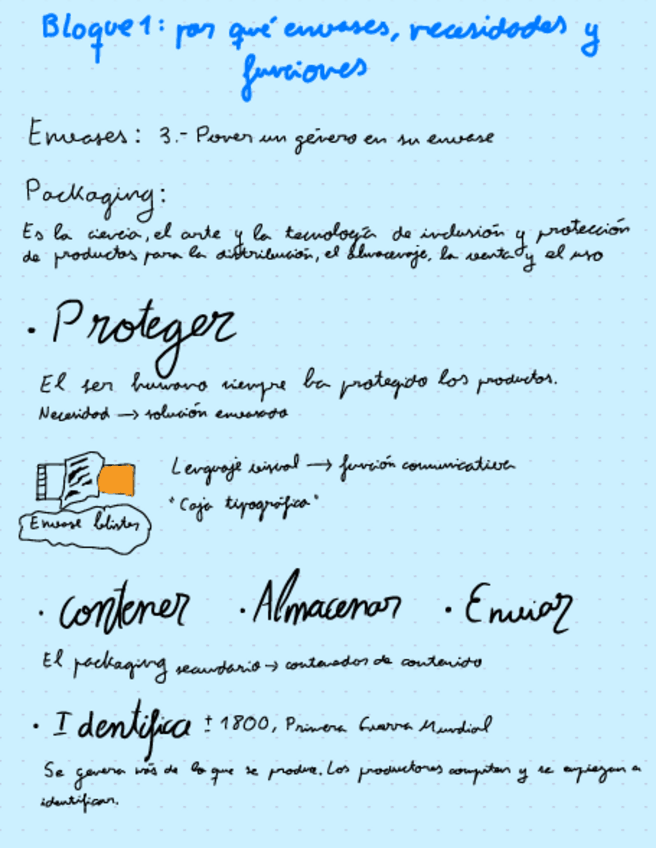 Bloque 1: por qué envases, necesidades y
funciones
Envases: 3.- Poner un género en su envase
Packaging:
Es la ciencia, el arte y la tecnología de inclusión y protección
de productos para la distribución, el almacenaje, la venta y el uso
· Proteger
El ser humano siempre ha protegido los productos.
Necesidad → solución envasado
Lenguaje visual → función comunicativa
"Caja tipográfica"
Envase blister
· Contener · Almacenar · Enviar
El packaging secundario → contenedos de contenido
· Identifica ± 1800, Primera Guerra Mundial
Se genera más de lo que se produce. Los productores compiten y se empiezan a
identificar.